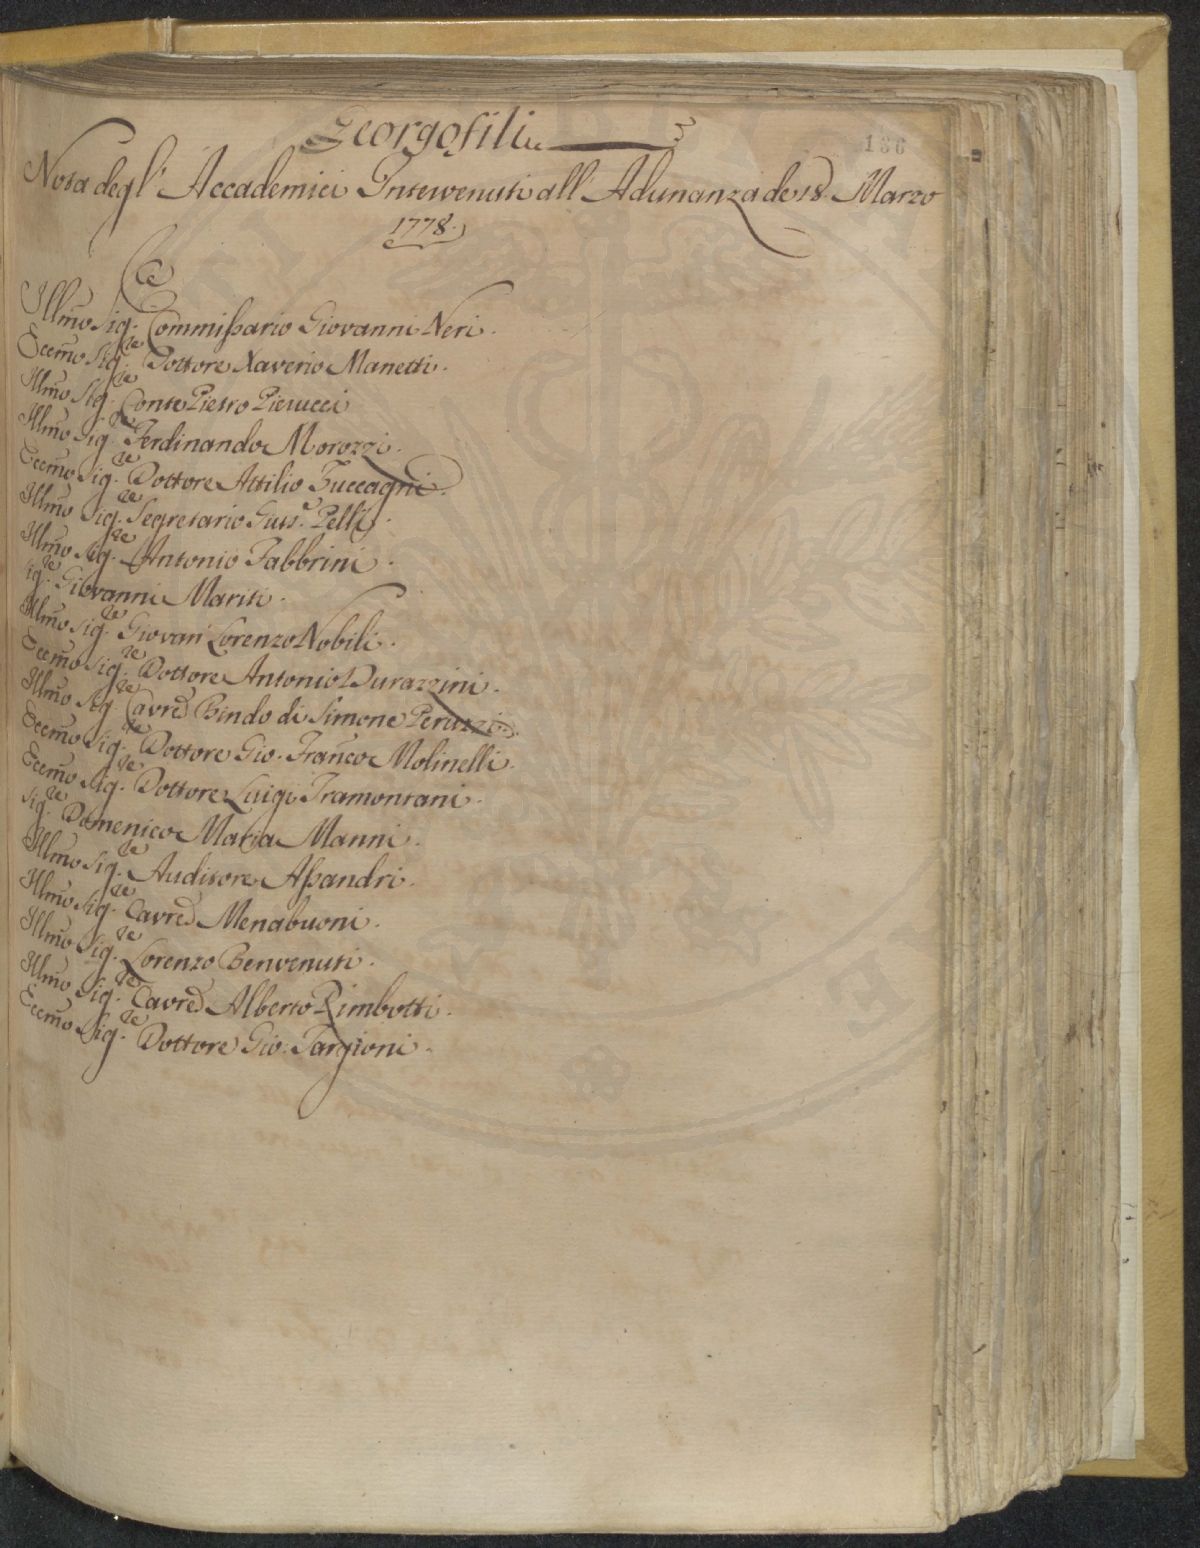 Georgofili
186
Nota degl' Accademici Intervenuti all' Adunanza de 18. Marzo
1778.
Illmo Sig.re Commissario Giovanni Neri.
Eccmo Sig.re Dottore Xaverio Manetti.
Illmo Sig.re Conte Pietro Pierucci
Illmo Sig.re Ferdinando Morozzi.
Eccmo Sig.re Dottore Attilio Zuccagni.
Illmo Sig.re Segretario Gius.e Pelli.
Illmo Sig.re Antonio Fabbrini.
Sig.re Giovanni Mariti.
Illmo Sig.re Giovan Lorenzo Nobili.
Eccmo Sig.re Dottore Antonio Durazzini.
Illmo Sig.re Cavre Bindo di Simone Peruzzi.
Eccmo Sig.re Dottore Gio. Franco Molinelli.
Eccmo Sig.re Dottore Luigi Tramontani.
Sig.re Domenico Maria Manni.
Illmo Sig.re Auditore Assandri.
Illmo Sig.re Cavre Menabuoni.
Illmo Sig.re Lorenzo Benvenuti.
Illmo Sig.re Cavre Alberto Rimbotti.
Eccmo Sig.re Dottore Gio. Targioni.